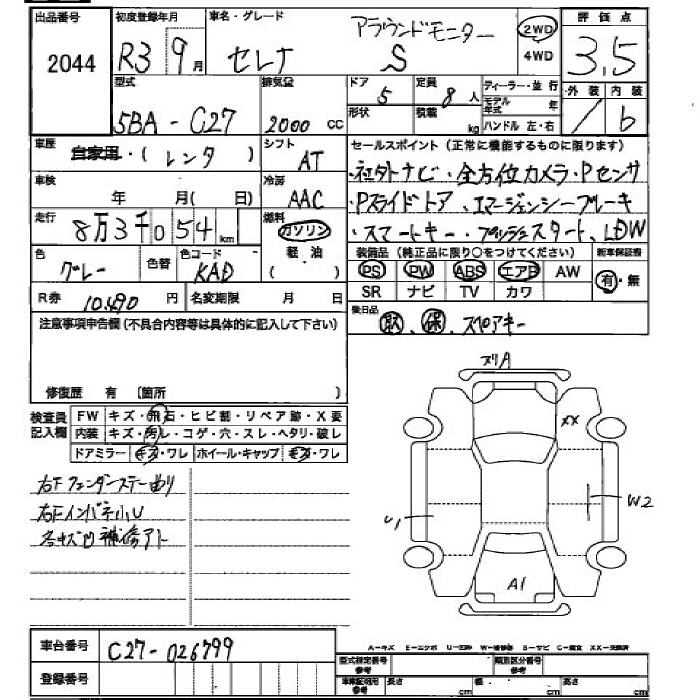 出品番号 初度登録年月 車名・グレード アラウンドモニター 2WD 評価点
2044 R3 9月 セレナ S 4WD 3.5
型式 排気量 ドア 5 定員 8人 ディーラー・並行 外装 内装
5BA - C27 2000 cc 形状 積載 kg モデル年式 年 ハンドル 左・右 / b
車歴 自家用・(レンタ) シフト AT セールスポイント(正常に機能するものに限ります)
・社外ナビ・全方位カメラ・Pセンサ
車検 年 月(日) 冷房 AAC ・Pスライドドア、エマージェンシーブレーキ
走行 8万3千054km 燃料 ガソリン 軽・油 ( ) ・スマートキー・プッシュスタート、LDW
色 グレー 色替 色コード KAD 装備品(純正品に限り○をつけてください) 新車保証書
PS PW ABS エアB AW 有・無
R券 10,690円 名変期限 月 日 SR ナビ TV カワ
注意事項申告欄(不具合内容等は具体的に記入して下さい) 後日品 取、保、スペアキー
修復歴 有 [箇所 ]
検査員記入欄 FW キズ・飛石・ヒビ割・リペア跡・X要
内装 キズ・汚レ・コゲ・穴・スレ・ヘタリ・破レ
ドアミラー キズ・ワレ ホイール・キャップ キズ・ワレ
右Fフェンダーステー曲り
右Fインパネ小U
各キズ凹補修アト
ヌリA
XX
U1
W2
A1
車台番号 C27-026799
A-キズ E-エクボ U-凹み W-補修跡 S-サビ C-腐食 XX-交換済
登録番号
型式指定番号(参考) 類別区分番号(参考)
車庫証明用(参考) 長さ cm 幅 cm 高さ cm